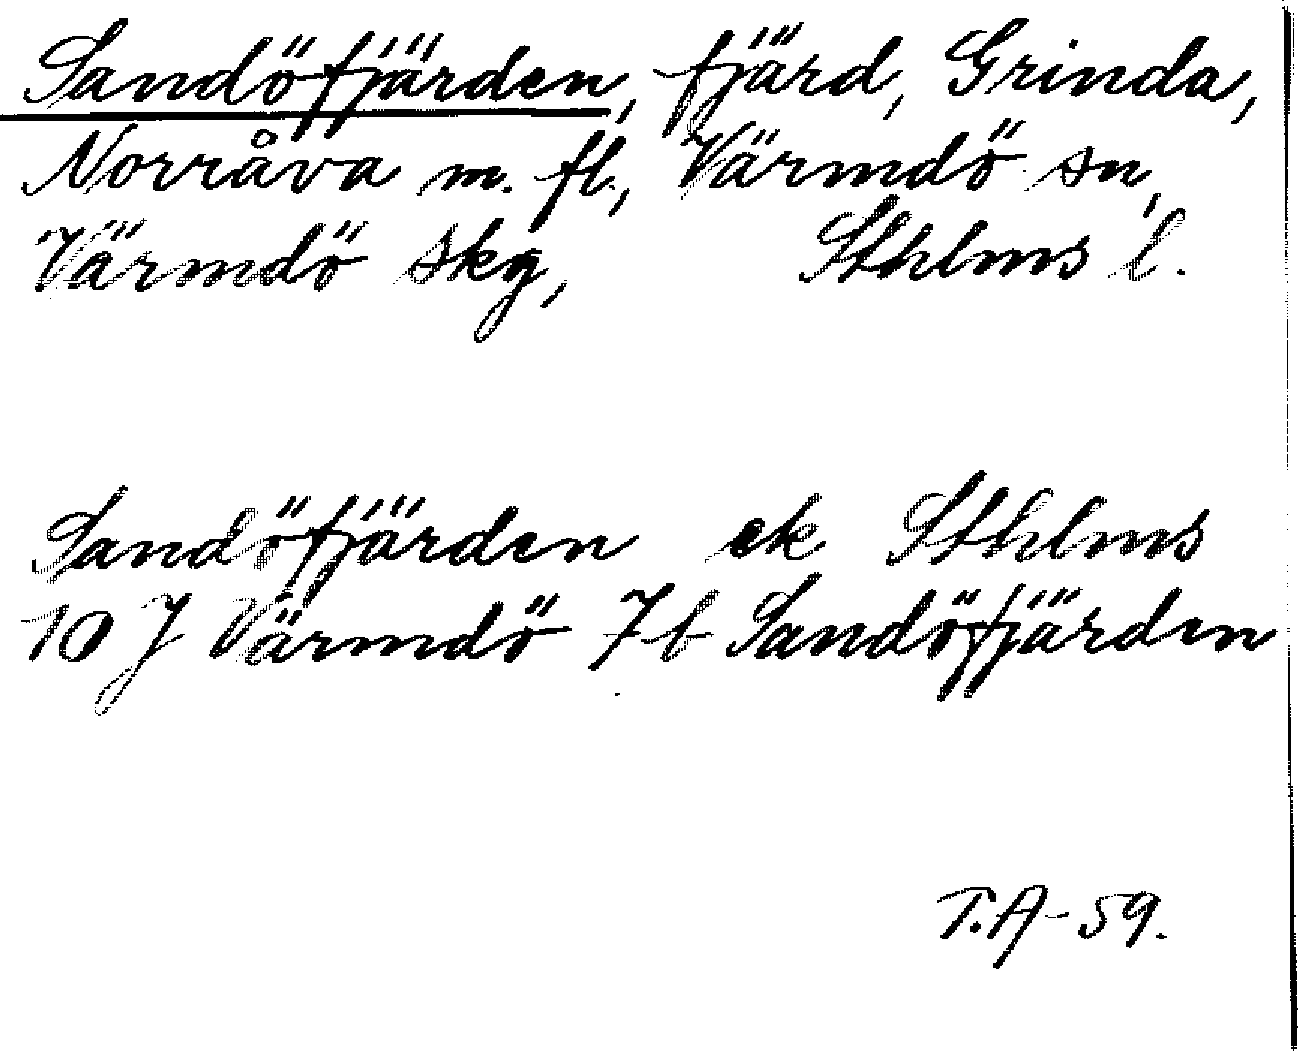 Sandöfjärden, fjärd, Grinda,
Norråva m. fl., Värmdö sn,
Värmdö skg, Sthlms l.
Sandöfjärden ek Sthlms
10 J Värmdö 7b Sandöfjärden
T.A-59.